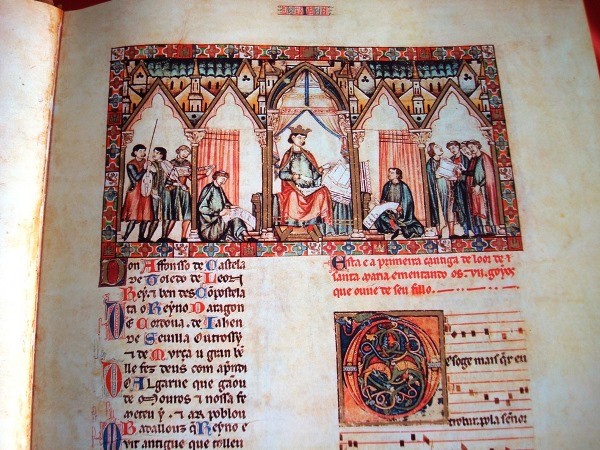 Don Affonsso de Castela
de Toledo de Leon
Rey ⁊ ben des Cōpostela
ta o Reyno Daragon
De Cordoua. de Iahen
de Seuilla Outrossy
⁊ de Murça u gran bē
lle fez deus com aprēdi
Do Algarue que gāou
de Mouros ⁊ nossa fe
meteu y. ⁊ ar poblou
Badallouz q̄ Reyno e
Esta e a primeira cantiga de loor de
santa maria ementando os .vii. goyos
que ouue de seu fillo.
esoge mais q̄r eu
trobar. pola señor